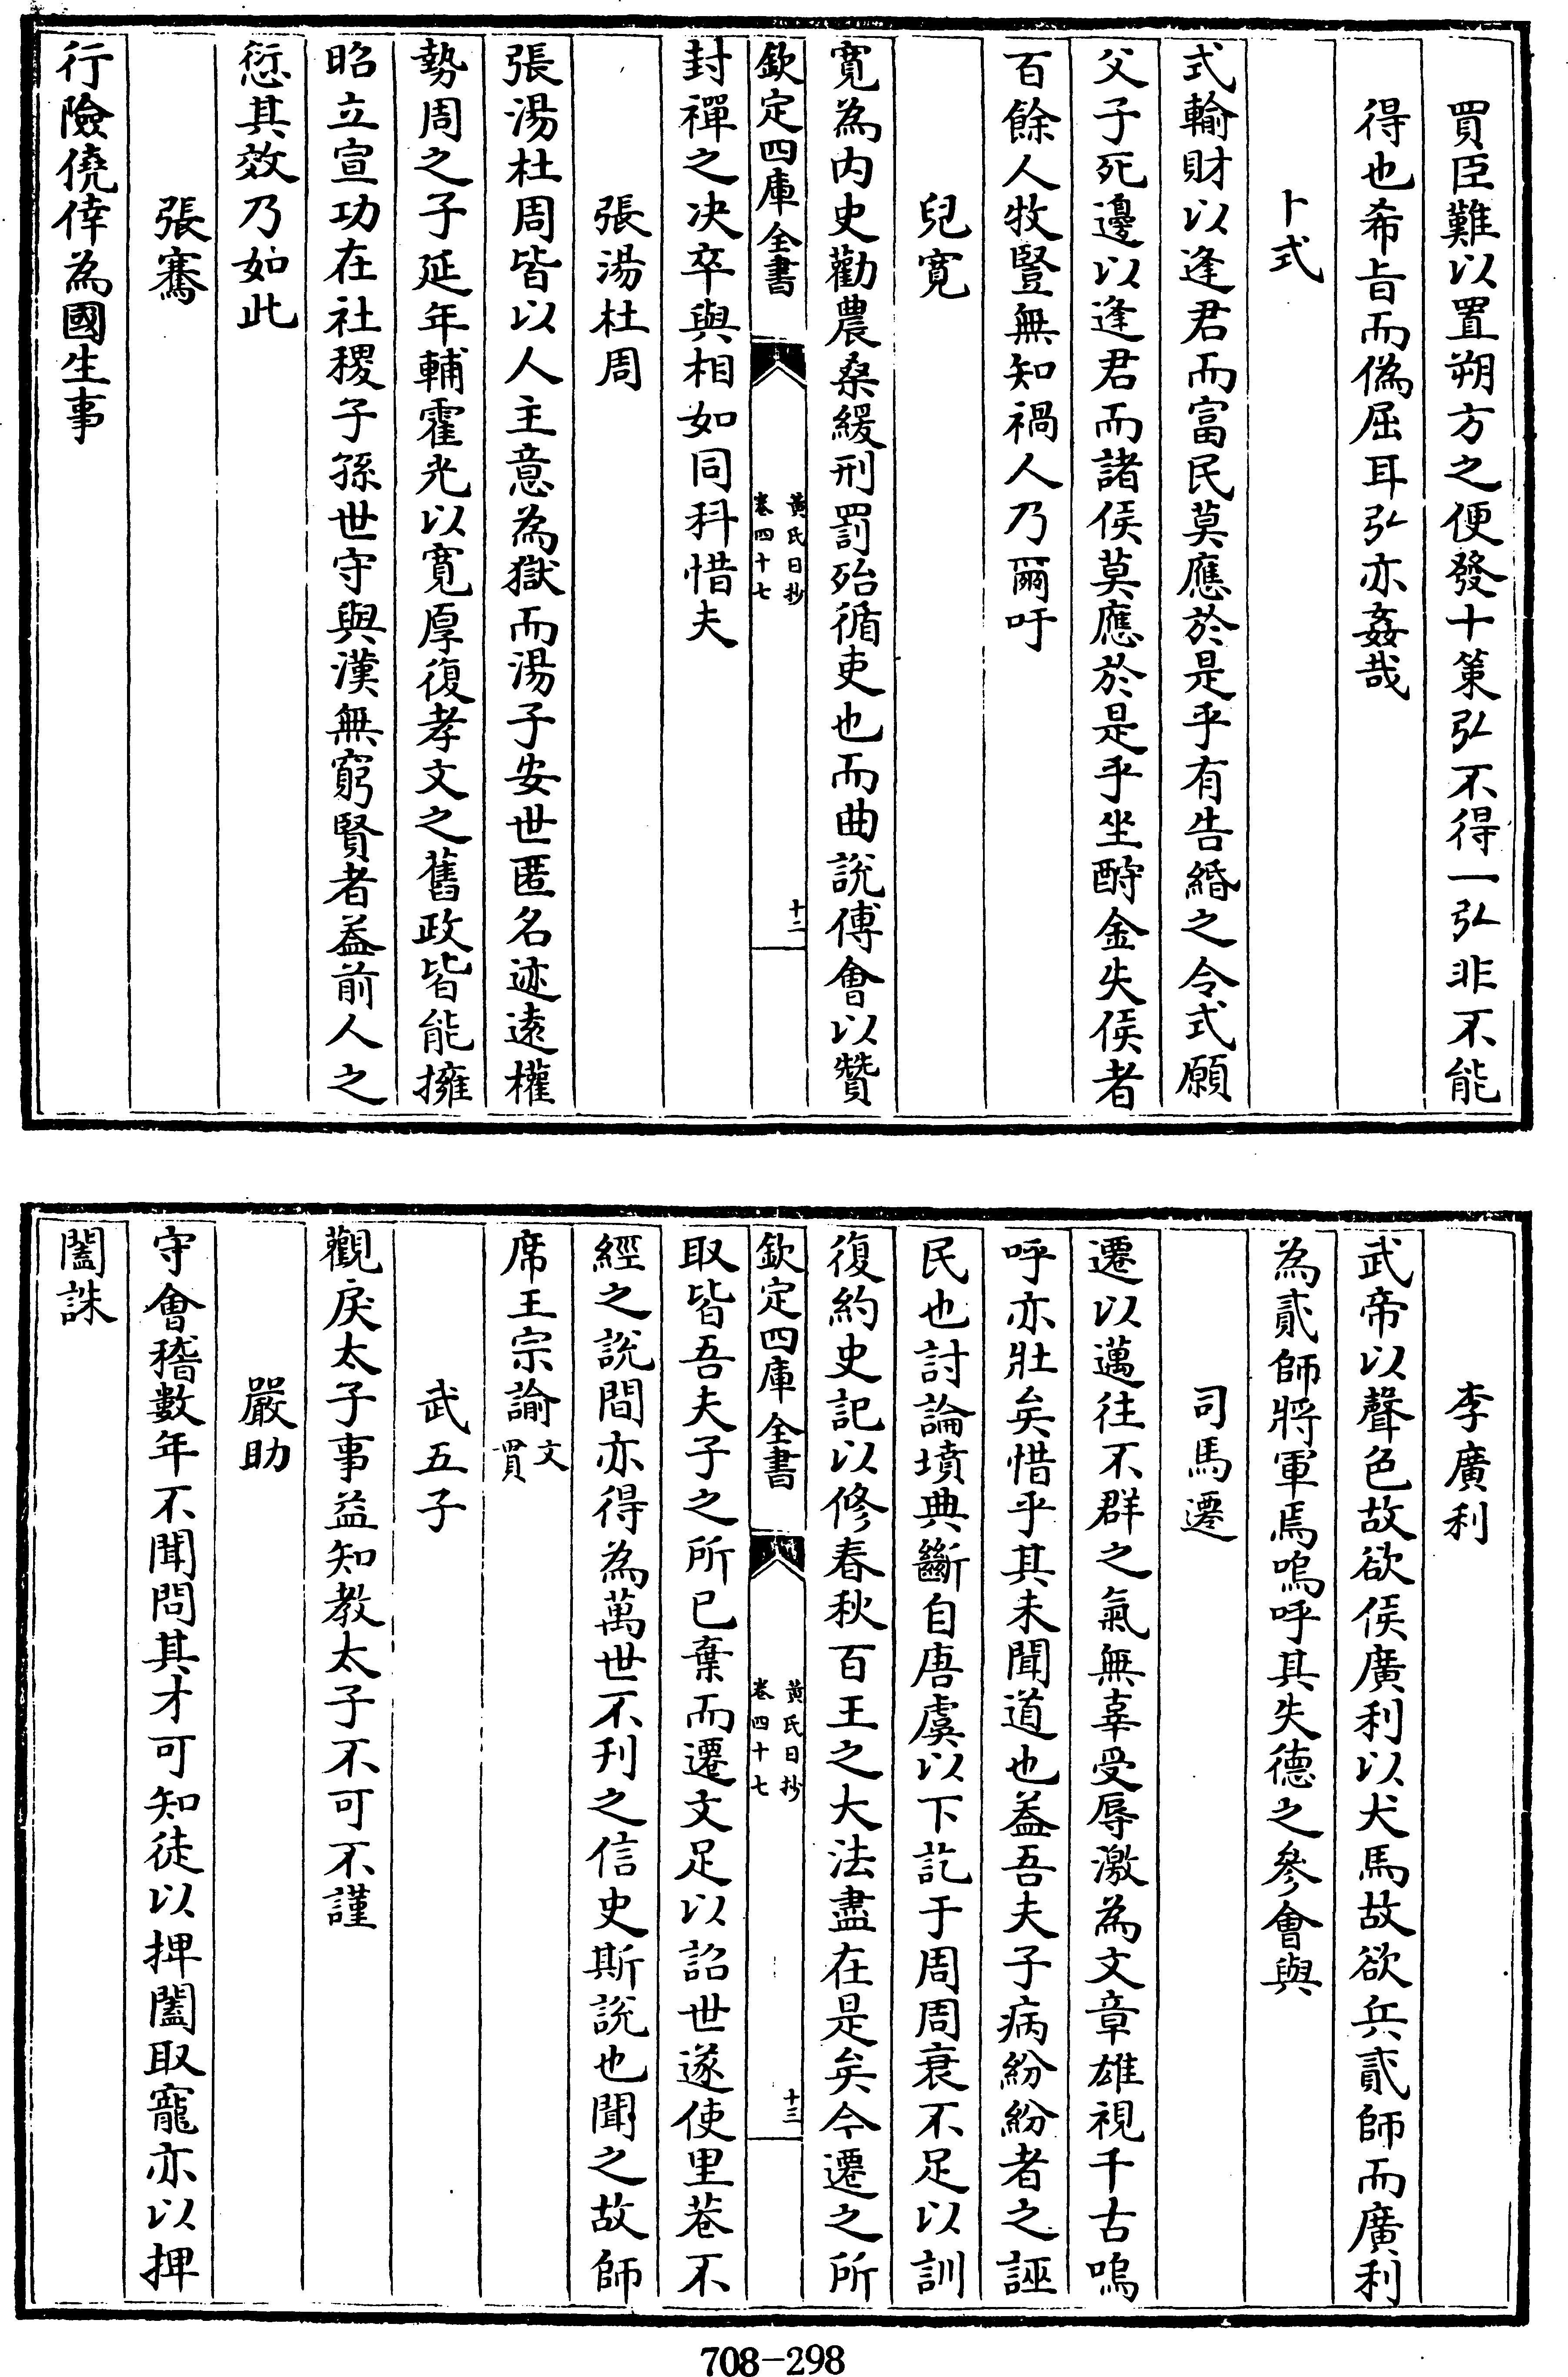 買臣難以置朔方之便發十策弘不得一弘非不能
得也希旨而偽屈耳弘亦姦哉
卜式
式輸財以逢君而富民莫應於是乎有告緡之令式願
父子死邊以逢君而諸侯莫應於是乎坐酎金失侯者
百餘人牧豎無知禍人乃爾吁
兒寛
寛為内史勸農桑緩刑罰殆循吏也而曲說傅會以贊
欽定四庫全書
黄氏日抄
卷四十七
十二
封禪之決卒與相如同科惜夫
張湯杜周
張湯杜周皆以人主意為獄而湯子安世匿名迹遠權
勢周之子延年輔霍光以寛厚復孝文之舊政皆能擁
昭立宣功在社稷子孫世守與漢無窮賢者蓋前人之
愆其效乃如此
張騫
行險僥倖為國生事
李廣利
武帝以聲色故欲侯廣利以犬馬故欲兵貳師而廣利
為貳師將軍焉嗚呼其失德之參會與
司馬遷
遷以邁往不群之氣無辜受辱激為文章雄視千古嗚
呼亦壯矣惜乎其未聞道也蓋吾夫子病紛紛者之誣
民也討論墳典斷自唐虞以下訖于周周衰不足以訓
復約史記以修春秋百王之大法盡在是矣今遷之所
欽定四庫全書
黄氏日抄
卷四十七
十三
取皆吾夫子之所已棄而遷文足以詔世遂使里巷不
經之說間亦得為萬世不刋之信史斯說也聞之故師
席王宗諭文貫
武五子
觀戾太子事益知教太子不可不謹
嚴助
守會稽數年不聞問其才可知徒以押闔取寵亦以押
闔誅
708-298